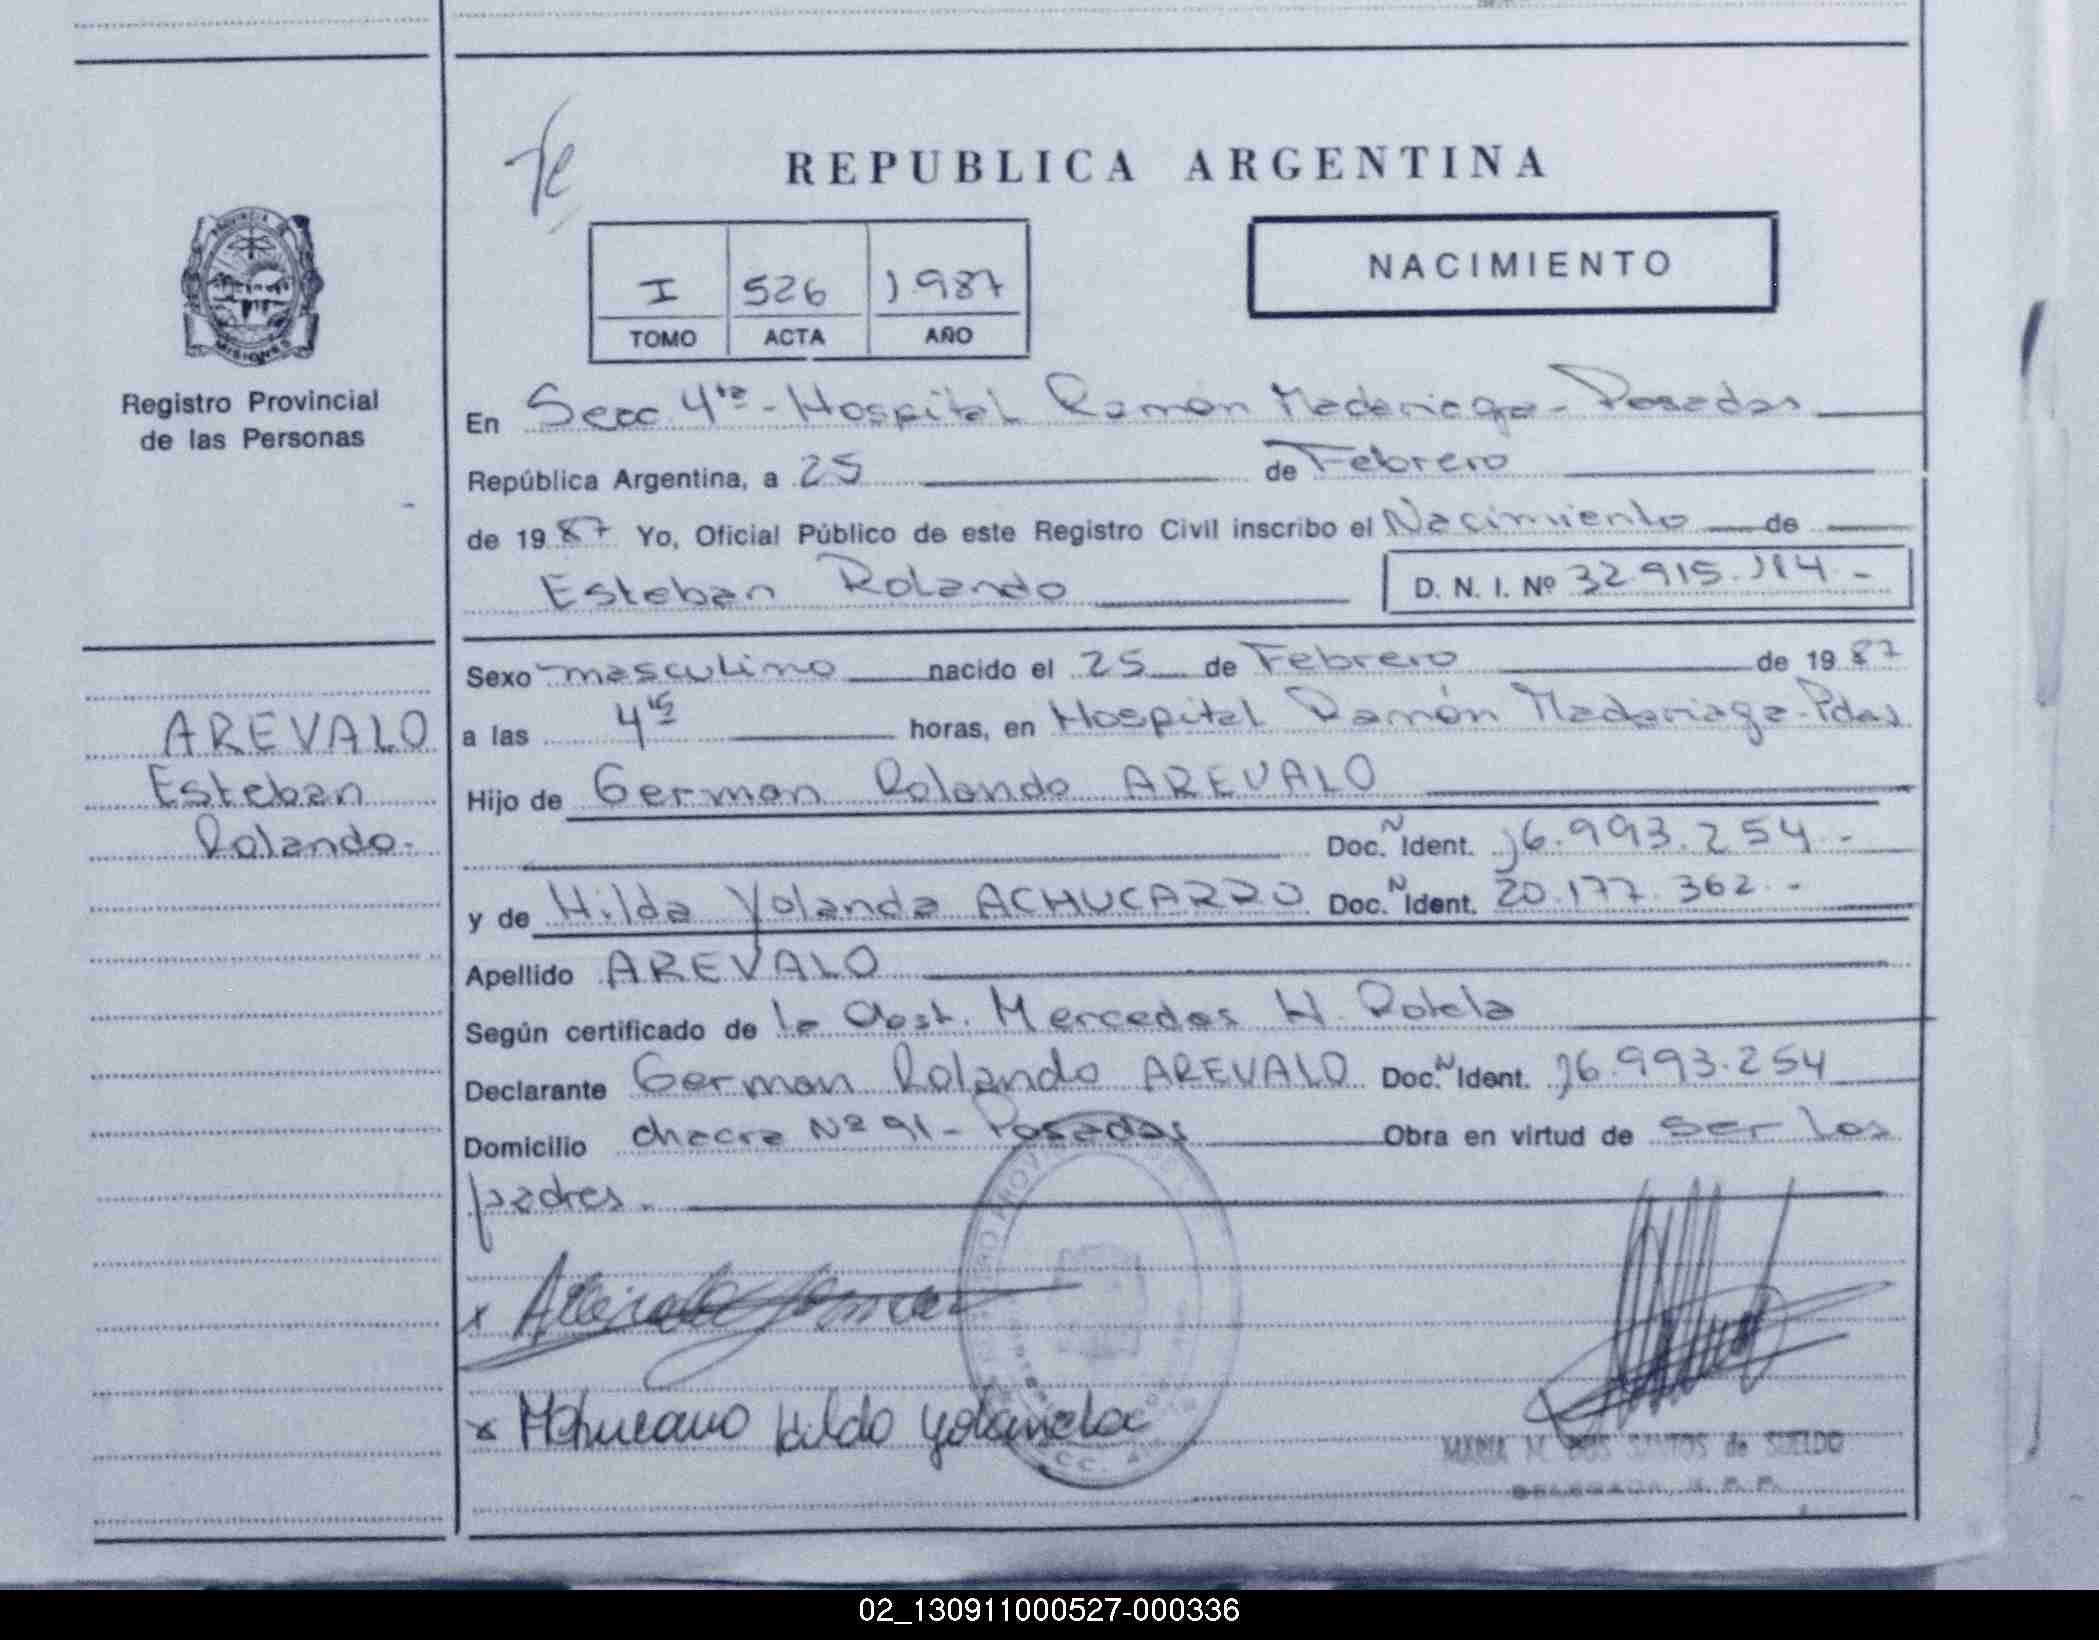 REPUBLICA ARGENTINA
I 526 1987
TOMO ACTA AÑO
NACIMIENTO
PROVINCIA DE
MISIONES
Registro Provincial
de las Personas
En Secc. 4ta - Hospital Ramón Madariaga - Posadas
República Argentina, a 25 de Febrero
de 1987 Yo, Oficial Público de este Registro Civil inscribo el Nacimiento de
Esteban Rolando D. N. I. Nº 32.915.114 -
Sexo masculino nacido el 25 de Febrero de 1987
a las 4 15 horas, en Hospital Ramón Madariaga - Pdas
AREVALO
Esteban
Rolando.
Hijo de German Rolando AREVALO
Doc. N Ident. 16.993.254 -
y de Hilda Yolanda ACHUCARRO Doc. N Ident. 20.177.362 -
Apellido AREVALO
Según certificado de la Obst. Mercedes H. Rotela
Declarante German Rolando AREVALO Doc. N Ident. 16.993.254
Domicilio chacra Nº 91 - Posadas Obra en virtud de ser los
padres.
x
x Achucarro Hilda Yolanda
MARIA M. DOS SANTOS de SUELDO
DELEGADA, R. P. P.
02_130911000527-000336